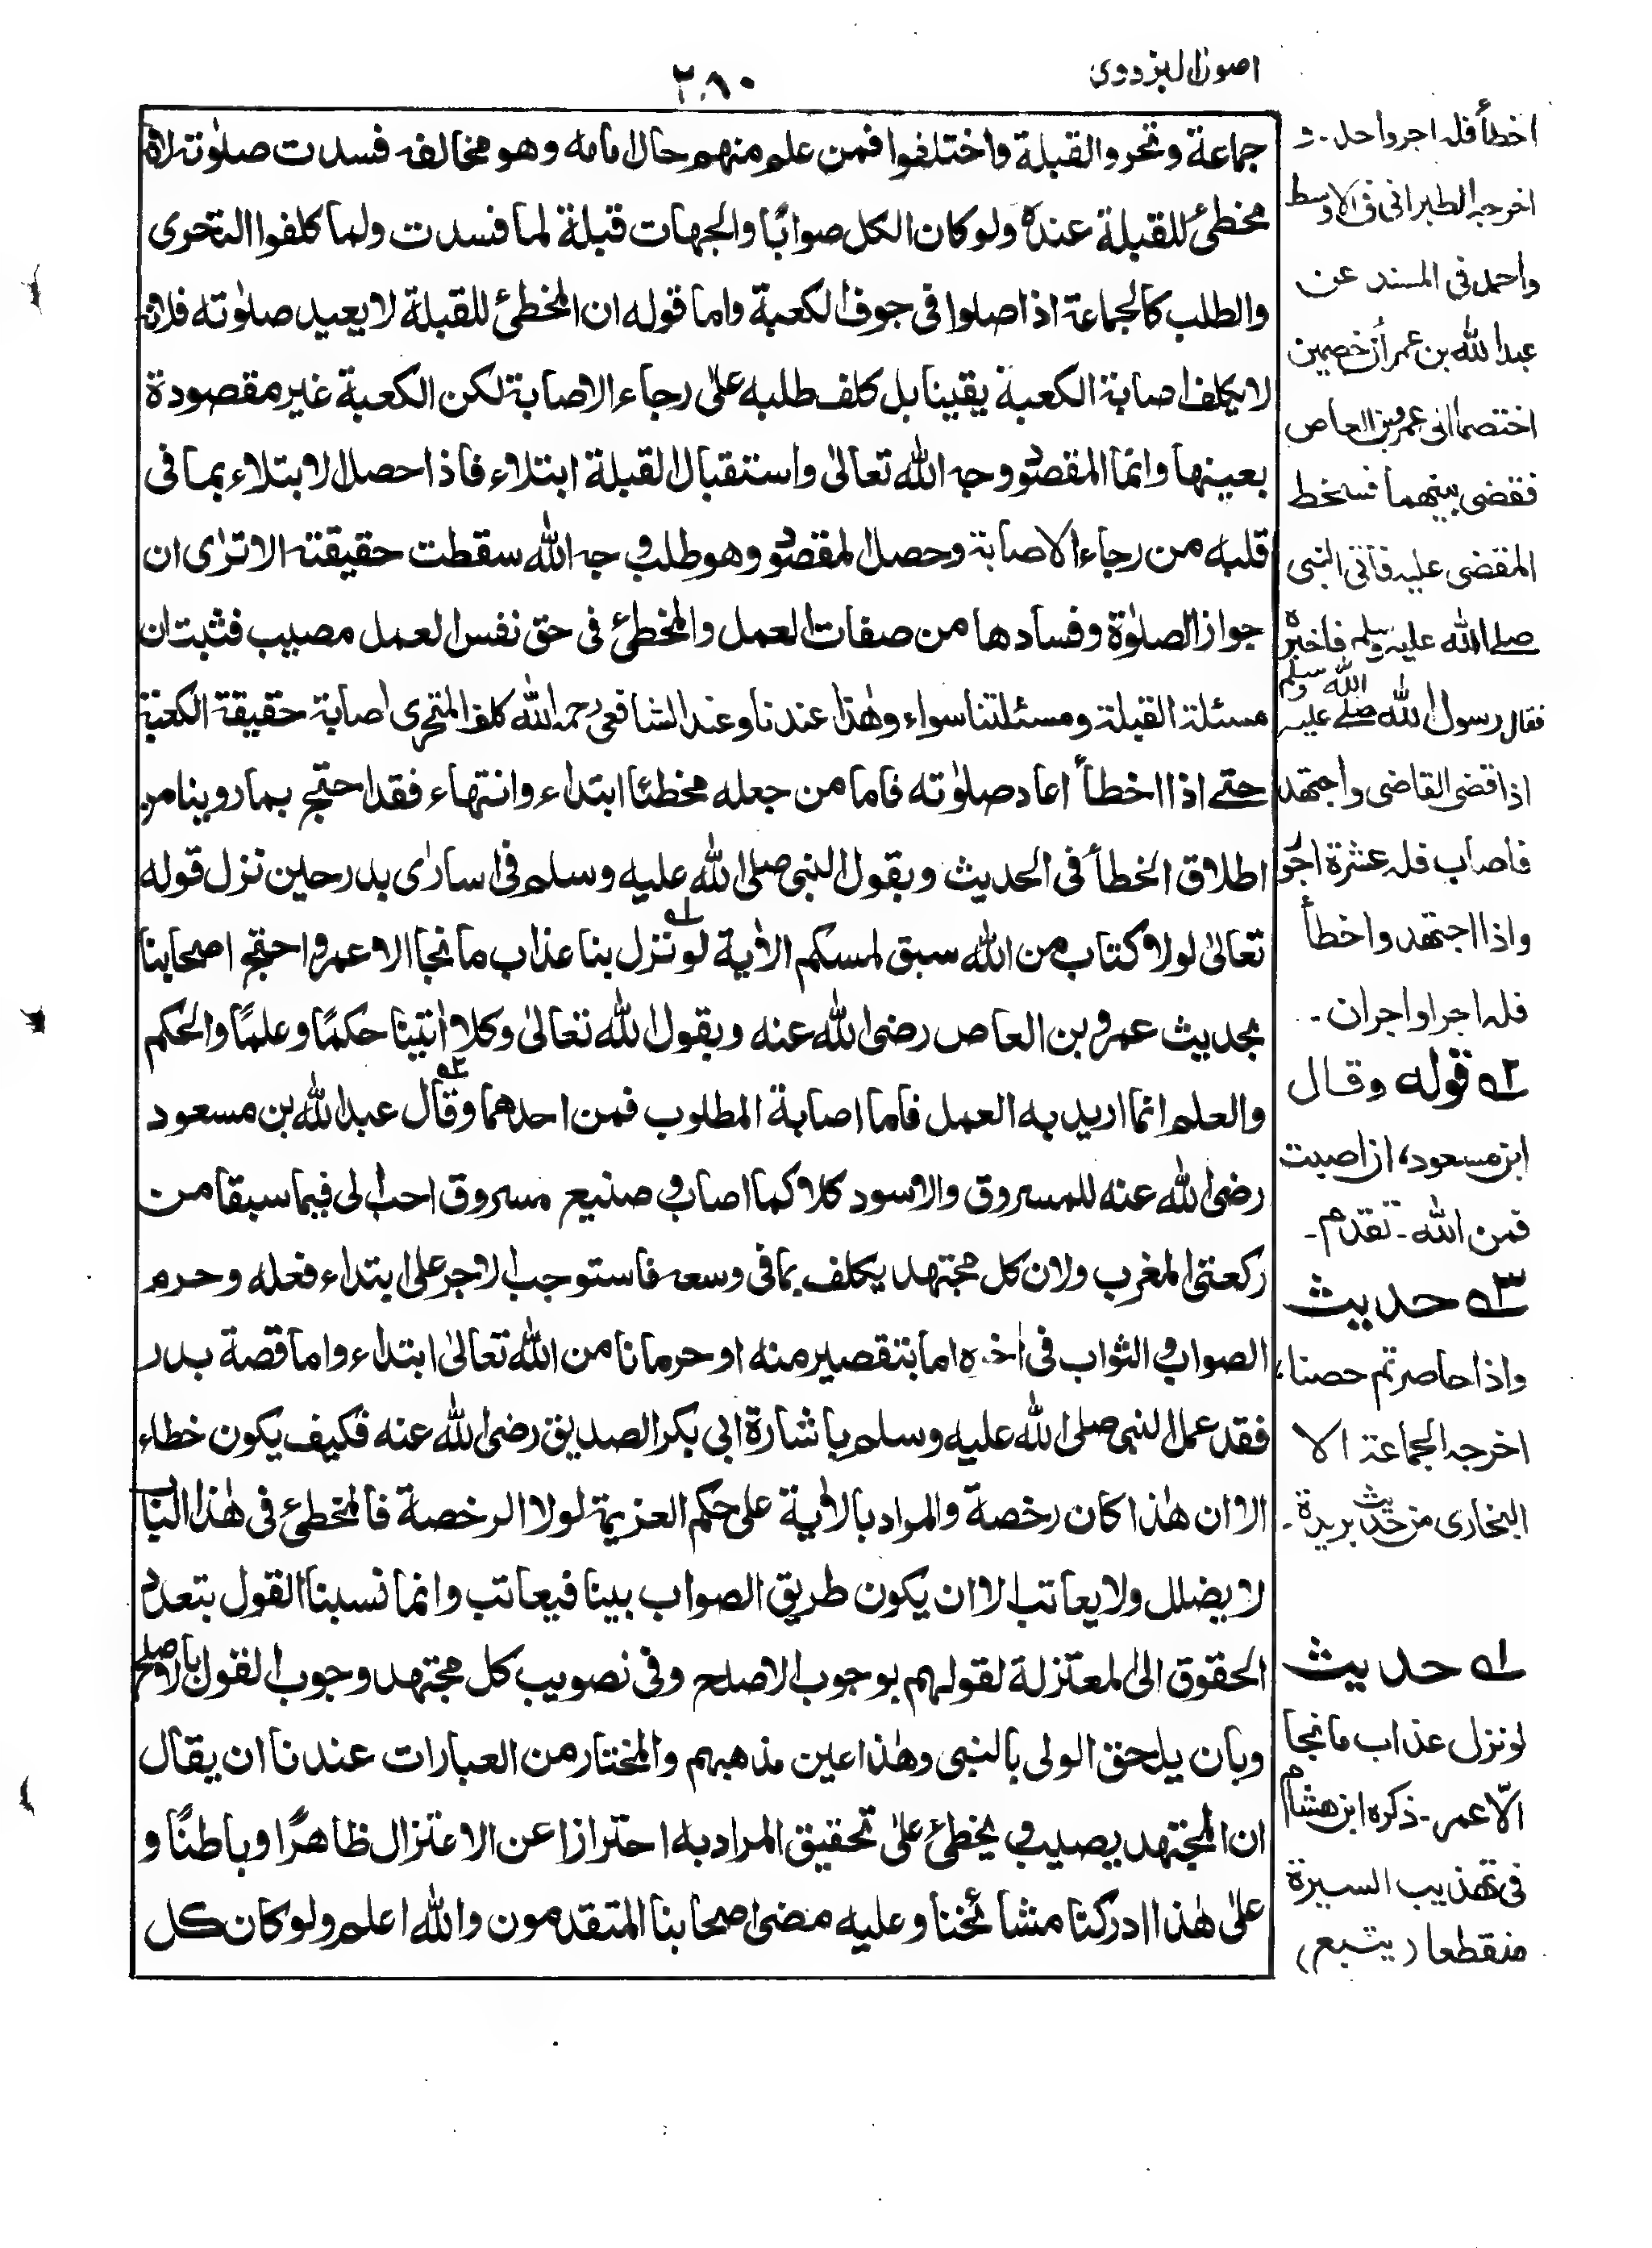 اصول البزدوی
۲۸۰
جماعة وتحروا القبلة واختلفوا فمن علم منهم حال امامه وهو مخالفه فسدت صلوٰته لانه
مخطئ للقبلة عنده ولو كان الكل صوابًا والجهات قبلة لما فسدت ولما كلفوا التحرى
والطلب كالجماعة اذا صلوا فى جوف الكعبة واما قوله ان المخطئ للقبلة لا يعيد صلوٰته فلانه
لا يكلف اصابة الكعبة يقينا بل كلف طلبه علىٰ رجاء الاصابة لكن الكعبة غير مقصودة
بعينها وانما المقصود وجه الله تعالىٰ واستقبال القبلة ابتلاء فاذا حصل الابتلاء بما فى
قلبه من رجاء الاصابة وحصل المقصود وهو طلب وجه الله سقطت حقيقته الا ترٰى ان
جواز الصلوٰة وفسادها من صفات العمل والمخطئ فى حق نفس العمل مصيب فثبت ان
مسئلة القبلة ومسئلتنا سواء وهٰذا عندنا وعند الشافعى رحمه الله كلف المتحرى اصابة حقيقة الكعبة
حتے اذا اخطأ اعاد صلوٰته فاما من جعله مخطئا ابتداء وانتهاء فقد احتج بما روينا من
اطلاق الخطأ فى الحديث وبقول النبى صلى الله عليه وسلم فى اسارٰى بدر حين نزل قوله
تعالىٰ لولا كتاب من الله سبق لمسكم الاٰية لو نزل بنا عذاب ما نجا الا عمر واحتج اصحابنا
بحديث عمرو بن العاص رضى الله عنه وبقول الله تعالىٰ وكلا اٰتينا حكمًا وعلمًا والحكم
والعلم انما اريد به العمل فاما اصابة المطلوب فمن احدهما وقال عبد الله بن مسعود
رضى الله عنه للمسروق والاسود كلا كما اصاب و صنيع مسروق احب الى فيما سبقا من
ركعتى المغرب ولان كل مجتهد يكلف بما فى وسعه فاستوجب الاجر على ابتداء فعله وحرم
الصواب والثواب فى اٰخره اما بتقصير منه او حرمانا من الله تعالىٰ ابتداء واما قصة بدر
فقد عمل النبى صلى الله عليه وسلم باشارة ابى بكر الصديق رضى الله عنه فكيف يكون خطاء
الا ان هٰذا كان رخصة والمراد بالاٰية على حكم العزيمة لولا الرخصة فالمخطئ فى هٰذا الباب
لا يضلل ولا يعاتب الا ان يكون طريق الصواب بينا فيعاتب وانما نسبنا القول بتعدد
الحقوق الى المعتزلة لقولهم بوجوب الاصلح وفى تصويب كل مجتهد وجوب القول بالاصلح
وبان يلحق الولى بالنبى وهٰذا عين مذهبهم والمختار من العبارات عندنا ان يقال
ان المجتهد يصيب و يخطئ علىٰ تحقيق المراد به احترازا عن الاعتزال ظاهرًا وباطنًا و
علىٰ هٰذا ادركنا مشائخنا وعليه مضى اصحابنا المتقدمون والله اعلم ولو كان كل
اخطأ فله اجر واحد - و
اخرجه الطبرانى فى الاوسط
واحمد فى المسند عن
عبد الله بن عمر أن خصمين
اختصما الى عمرو بن العاص
فقضى بينهما فسخط
المقضى عليه فأتى النبى
صلے الله عليه وسلم فاخبره
فقال رسول الله صلے عليه الله وسلم
اذا قضى القاضى واجتهد
فاصاب فله عشرة اجور
واذا اجتهد واخطأ
فله اجر او اجران -
۲ه قوله وقال
ابن مسعود؛ ان اصبت
فمن الله - تقدم -
۳ه حديث
واذا حاصرتم حصنا؛
اخرجه الجماعة الا
البخارى من حديث بريدة -
۱ه حديث
لو نزل عذاب ما نجا
الّا عمر - ذكره ابن هشام
فى تهذيب السيرة
منقطعا (يتبع)